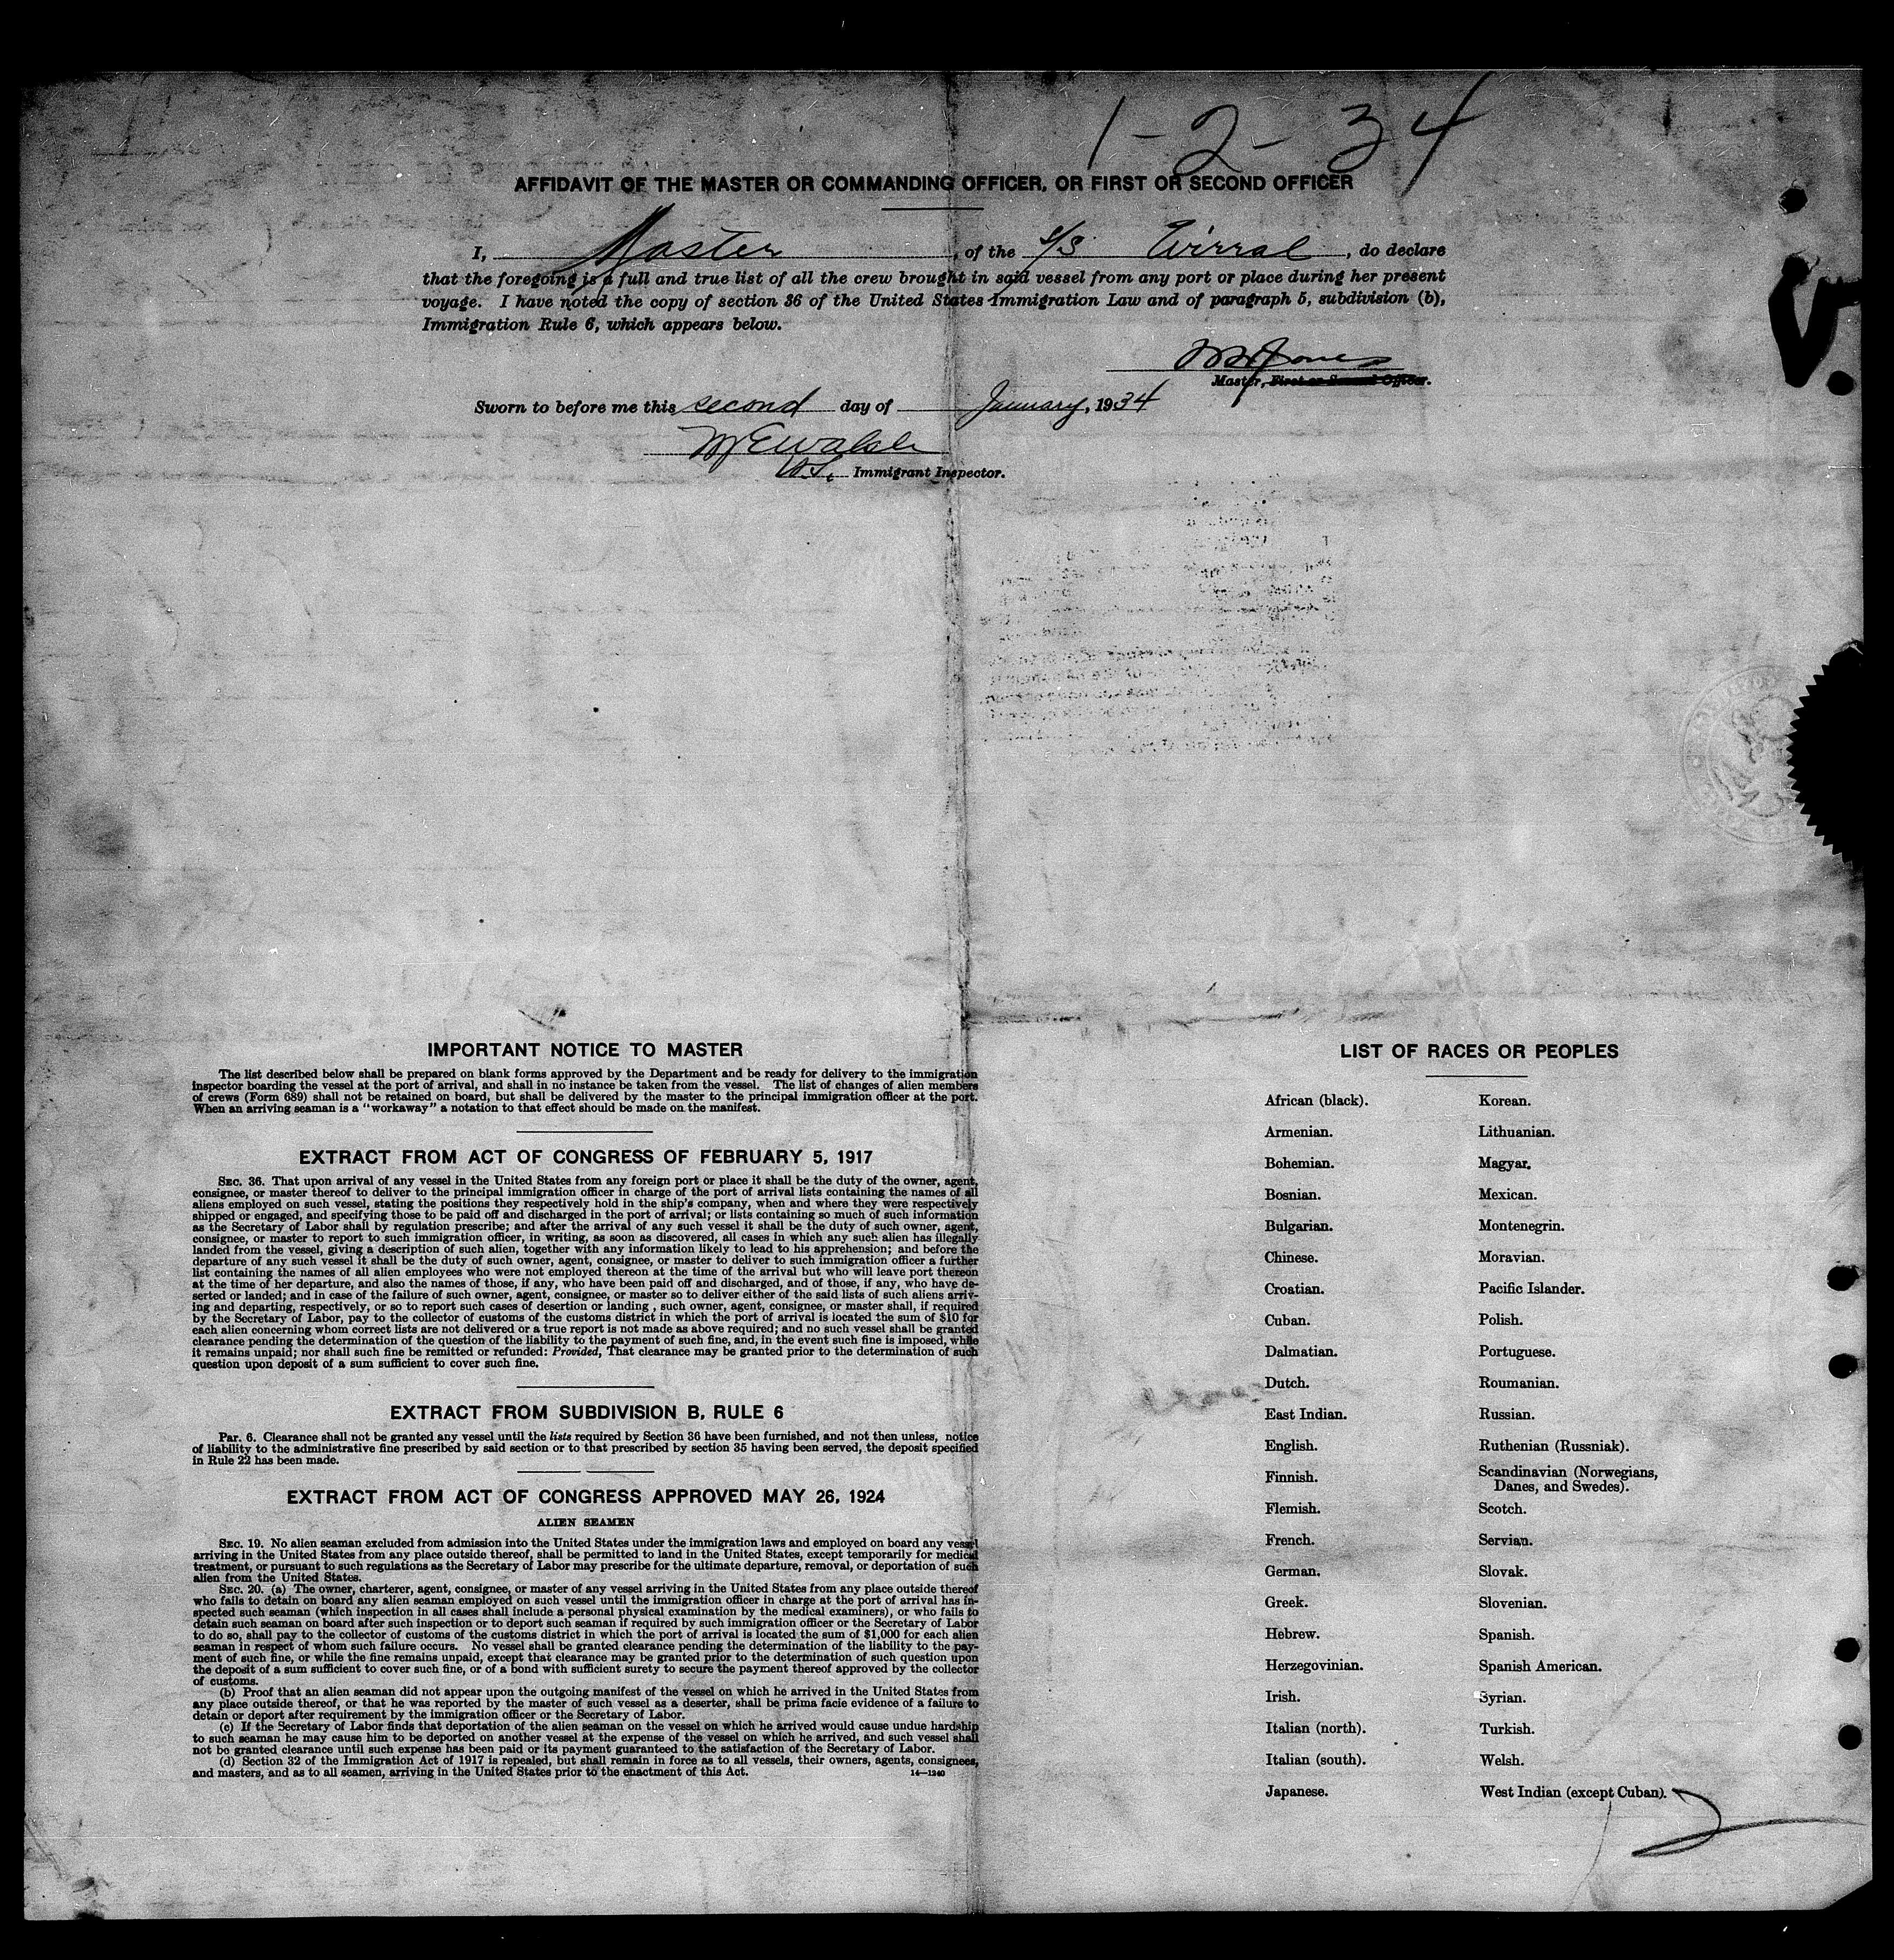 1-2-34
AFFIDAVIT OF THE MASTER OR COMMANDING OFFICER, OR FIRST OR SECOND OFFICER
I, Master, of the S/S Wirral, do declare
that the foregoing is a full and true list of all the crew brought in said vessel from any port or place during her present
voyage. I have noted the copy of section 36 of the United States Immigration Law and of paragraph 5, subdivision (b),
Immigration Rule 6, which appears below.
Jones
Master, First or Second Officer.
Sworn to before me this second day of January, 1934
Walsh
U.S. Immigrant Inspector.
IMPORTANT NOTICE TO MASTER
The list described below shall be prepared on blank forms approved by the Department and be ready for delivery to the immigration
inspector boarding the vessel at the port of arrival, and shall in no instance be taken from the vessel. The list of changes of alien members
of crews (Form 689) shall not be retained on board, but shall be delivered by the master to the principal immigration officer at the port.
When an arriving seaman is a "workaway" a notation to that effect should be made on the manifest.
EXTRACT FROM ACT OF CONGRESS OF FEBRUARY 5, 1917
SEC. 36. That upon arrival of any vessel in the United States from any foreign port or place it shall be the duty of the owner, agent,
consignee, or master thereof to deliver to the principal immigration officer in charge of the port of arrival lists containing the names of all
aliens employed on such vessel, stating the positions they respectively hold in the ship's company, when and where they were respectively
shipped or engaged, and specifying those to be paid off and discharged in the port of arrival; or lists containing so much of such information
as the Secretary of Labor shall by regulation prescribe; and after the arrival of any such vessel it shall be the duty of such owner, agent,
consignee, or master to report to such immigration officer, in writing, as soon as discovered, all cases in which any such alien has illegally
landed from the vessel, giving a description of such alien, together with any information likely to lead to his apprehension; and before the
departure of any such vessel it shall be the duty of such owner, agent, consignee, or master to deliver to such immigration officer a further
list containing the names of all alien employees who were not employed thereon at the time of the arrival but who will leave port thereon
at the time of her departure, and also the names of those, if any, who have been paid off and discharged, and of those, if any, who have de-
serted or landed; and in case of the failure of such owner, agent, consignee, or master so to deliver either of the said lists of such aliens arriv-
ing and departing, respectively, or so to report such cases of desertion or landing , such owner, agent, consignee, or master shall, if required
by the Secretary of Labor, pay to the collector of customs of the customs district in which the port of arrival is located the sum of $10 for
each alien concerning whom correct lists are not delivered or a true report is not made as above required; and no such vessel shall be granted
clearance pending the determination of the question of the liability to the payment of such fine, and, in the event such fine is imposed, while
it remains unpaid; nor shall such fine be remitted or refunded: Provided, That clearance may be granted prior to the determination of such
question upon deposit of a sum sufficient to cover such fine.
EXTRACT FROM SUBDIVISION B, RULE 6
Par. 6. Clearance shall not be granted any vessel until the lists required by Section 36 have been furnished, and not then unless, notice
of liability to the administrative fine prescribed by said section or to that prescribed by section 35 having been served, the deposit specified
in Rule 22 has been made.
EXTRACT FROM ACT OF CONGRESS APPROVED MAY 26, 1924
ALIEN SEAMEN
SEC. 19. No alien seaman excluded from admission into the United States under the immigration laws and employed on board any vessel
arriving in the United States from any place outside thereof, shall be permitted to land in the United States, except temporarily for medical
treatment, or pursuant to such regulations as the Secretary of Labor may prescribe for the ultimate departure, removal, or deportation of such
alien from the United States.
SEC. 20. (a) The owner, charterer, agent, consignee, or master of any vessel arriving in the United States from any place outside thereof
who fails to detain on board any alien seaman employed on such vessel until the immigration officer in charge at the port of arrival has in-
spected such seaman (which inspection in all cases shall include a personal physical examination by the medical examiners), or who fails to
detain such seaman on board after such inspection or to deport such seaman if required by such immigration officer or the Secretary of Labor
to do so, shall pay to the collector of customs of the customs district in which the port of arrival is located the sum of $1,000 for each alien
seaman in respect of whom such failure occurs. No vessel shall be granted clearance pending the determination of the liability to the pay-
ment of such fine, or while the fine remains unpaid, except that clearance may be granted prior to the determination of such question upon
the deposit of a sum sufficient to cover such fine, or of a bond with sufficient surety to secure the payment thereof approved by the collector
of customs.
(b) Proof that an alien seaman did not appear upon the outgoing manifest of the vessel on which he arrived in the United States from
any place outside thereof, or that he was reported by the master of such vessel as a deserter, shall be prima facie evidence of a failure to
detain or deport after requirement by the immigration officer or the Secretary of Labor.
(c) If the Secretary of Labor finds that deportation of the alien seaman on the vessel on which he arrived would cause undue hardship
to such seaman he may cause him to be deported on another vessel at the expense of the vessel on which he arrived, and such vessel shall
not be granted clearance until such expense has been paid or its payment guaranteed to the satisfaction of the Secretary of Labor.
(d) Section 32 of the Immigration Act of 1917 is repealed, but shall remain in force as to all vessels, their owners, agents, consignees,
and masters, and as to all seamen, arriving in the United States prior to the enactment of this Act. 14—1240
LIST OF RACES OR PEOPLES
African (black). Korean.
Armenian. Lithuanian.
Bohemian. Magyar.
Bosnian. Mexican.
Bulgarian. Montenegrin.
Chinese. Moravian.
Croatian. Pacific Islander.
Cuban. Polish.
Dalmatian. Portuguese.
Dutch. Roumanian.
East Indian. Russian.
English. Ruthenian (Russniak).
Finnish. Scandinavian (Norwegians,
Danes, and Swedes).
Flemish. Scotch.
French. Servian.
German. Slovak.
Greek. Slovenian.
Hebrew. Spanish.
Herzegovinian. Spanish American.
Irish. Syrian.
Italian (north). Turkish.
Italian (south). Welsh.
Japanese. West Indian (except Cuban).